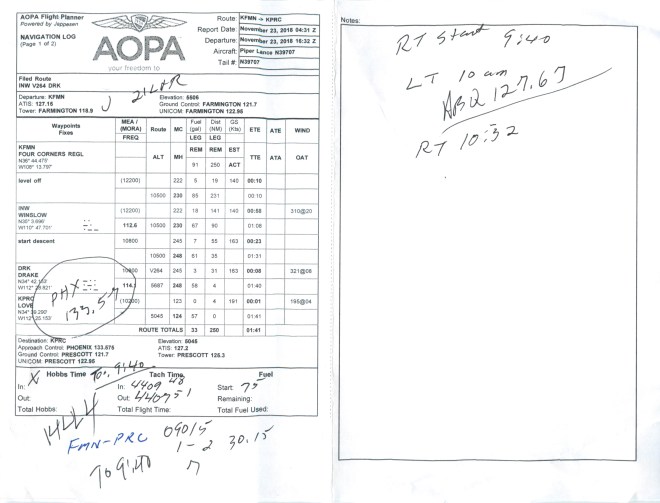 AOPA Flight Planner
Powered by Jeppesen
NAVIGATION LOG
(Page 1 of 2)
AOPA
your freedom to
Route: KFMN -> KPRC
Report Date: November 23, 2018 04:31 Z
Departure: November 23, 2018 16:32 Z
Aircraft: Piper Lance N39707
Tail #: N39707
Filed Route
INW V264 DRK
Departure: KFMN Elevation: 5506
ATIS: 127.15 Ground Control: FARMINGTON 121.7
Tower: FARMINGTON 118.9 UNICOM: FARMINGTON 122.95
Waypoints Fixes MEA / (MORA) FREQ Route ALT MC MH Fuel (gal) LEG REM Dist (NM) LEG REM GS (Kts) EST ACT ETE TTE ATE ATA WIND OAT
KFMN
FOUR CORNERS REGL
N36° 44.475'
W108° 13.79'
91 250
level off (12200) 222 5 19 140 00:10
10500 230 85 231 00:10
INW
WINSLOW
N35° 3.696'
W110° 47.701'
(12200) 222 18 141 140 00:58 310@20
112.6 10500 230 67 90 01:08
start descent 10800 245 7 55 163 00:23
10500 248 61 35 01:31
DRK
DRAKE
N34° 42.153'
10800 V264 245 3 31 163 00:08 321@08
114.1 5687 248 58 4 01:40
PHX
133.57
KPRC
LOVE
(10200) 123 0 4 191 00:01 195@04
5045 124 57 0 01:41
ROUTE TOTALS 33 250 01:41
Destination: KPRC Elevation: 5045
Approach Control: PHOENIX 133.575 ATIS: 127.2
Ground Control: PRESCOTT 121.7 Tower: PRESCOTT 125.3
UNICOM: PRESCOTT 122.95
Hobbs Time Tach Time Fuel
In: In: 4409 Start: 75
Out: Out: Remaining:
Total Hobbs: Total Flight Time: Total Fuel Used:
FMN-PRC 09015
1-2 30.15
TO 9:40
Notes:
RT Start 9:40
LT 10 am
ABQ 127.67
RT 10:32